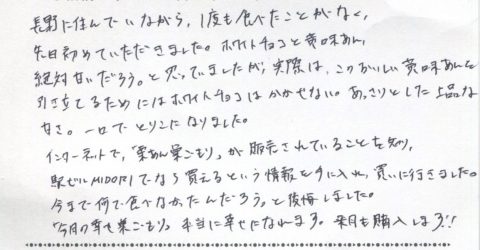 長野に住んでいながら、1度も食べたことがなく、
先日初めていただきました。ホワイトチョコと黄味あん、
絶対甘いだろう。と思っていましたが、実際は、このおいしい黄味あんを
引き立てるためにはホワイトチョコはかかせない。あっさりとした上品な
甘さ。一口でとりこになりました。
インターネットで、「栗あん巣ごもり」が販売されていることを知り、
駅ビルMIDORIでなら買えるという情報を手に入れ、買いに行きました。
今まで何で食べなかったんだろう。と後悔しました。
「今月の幸せ巣ごもり」本当に幸せになれます。来月も購入します!!